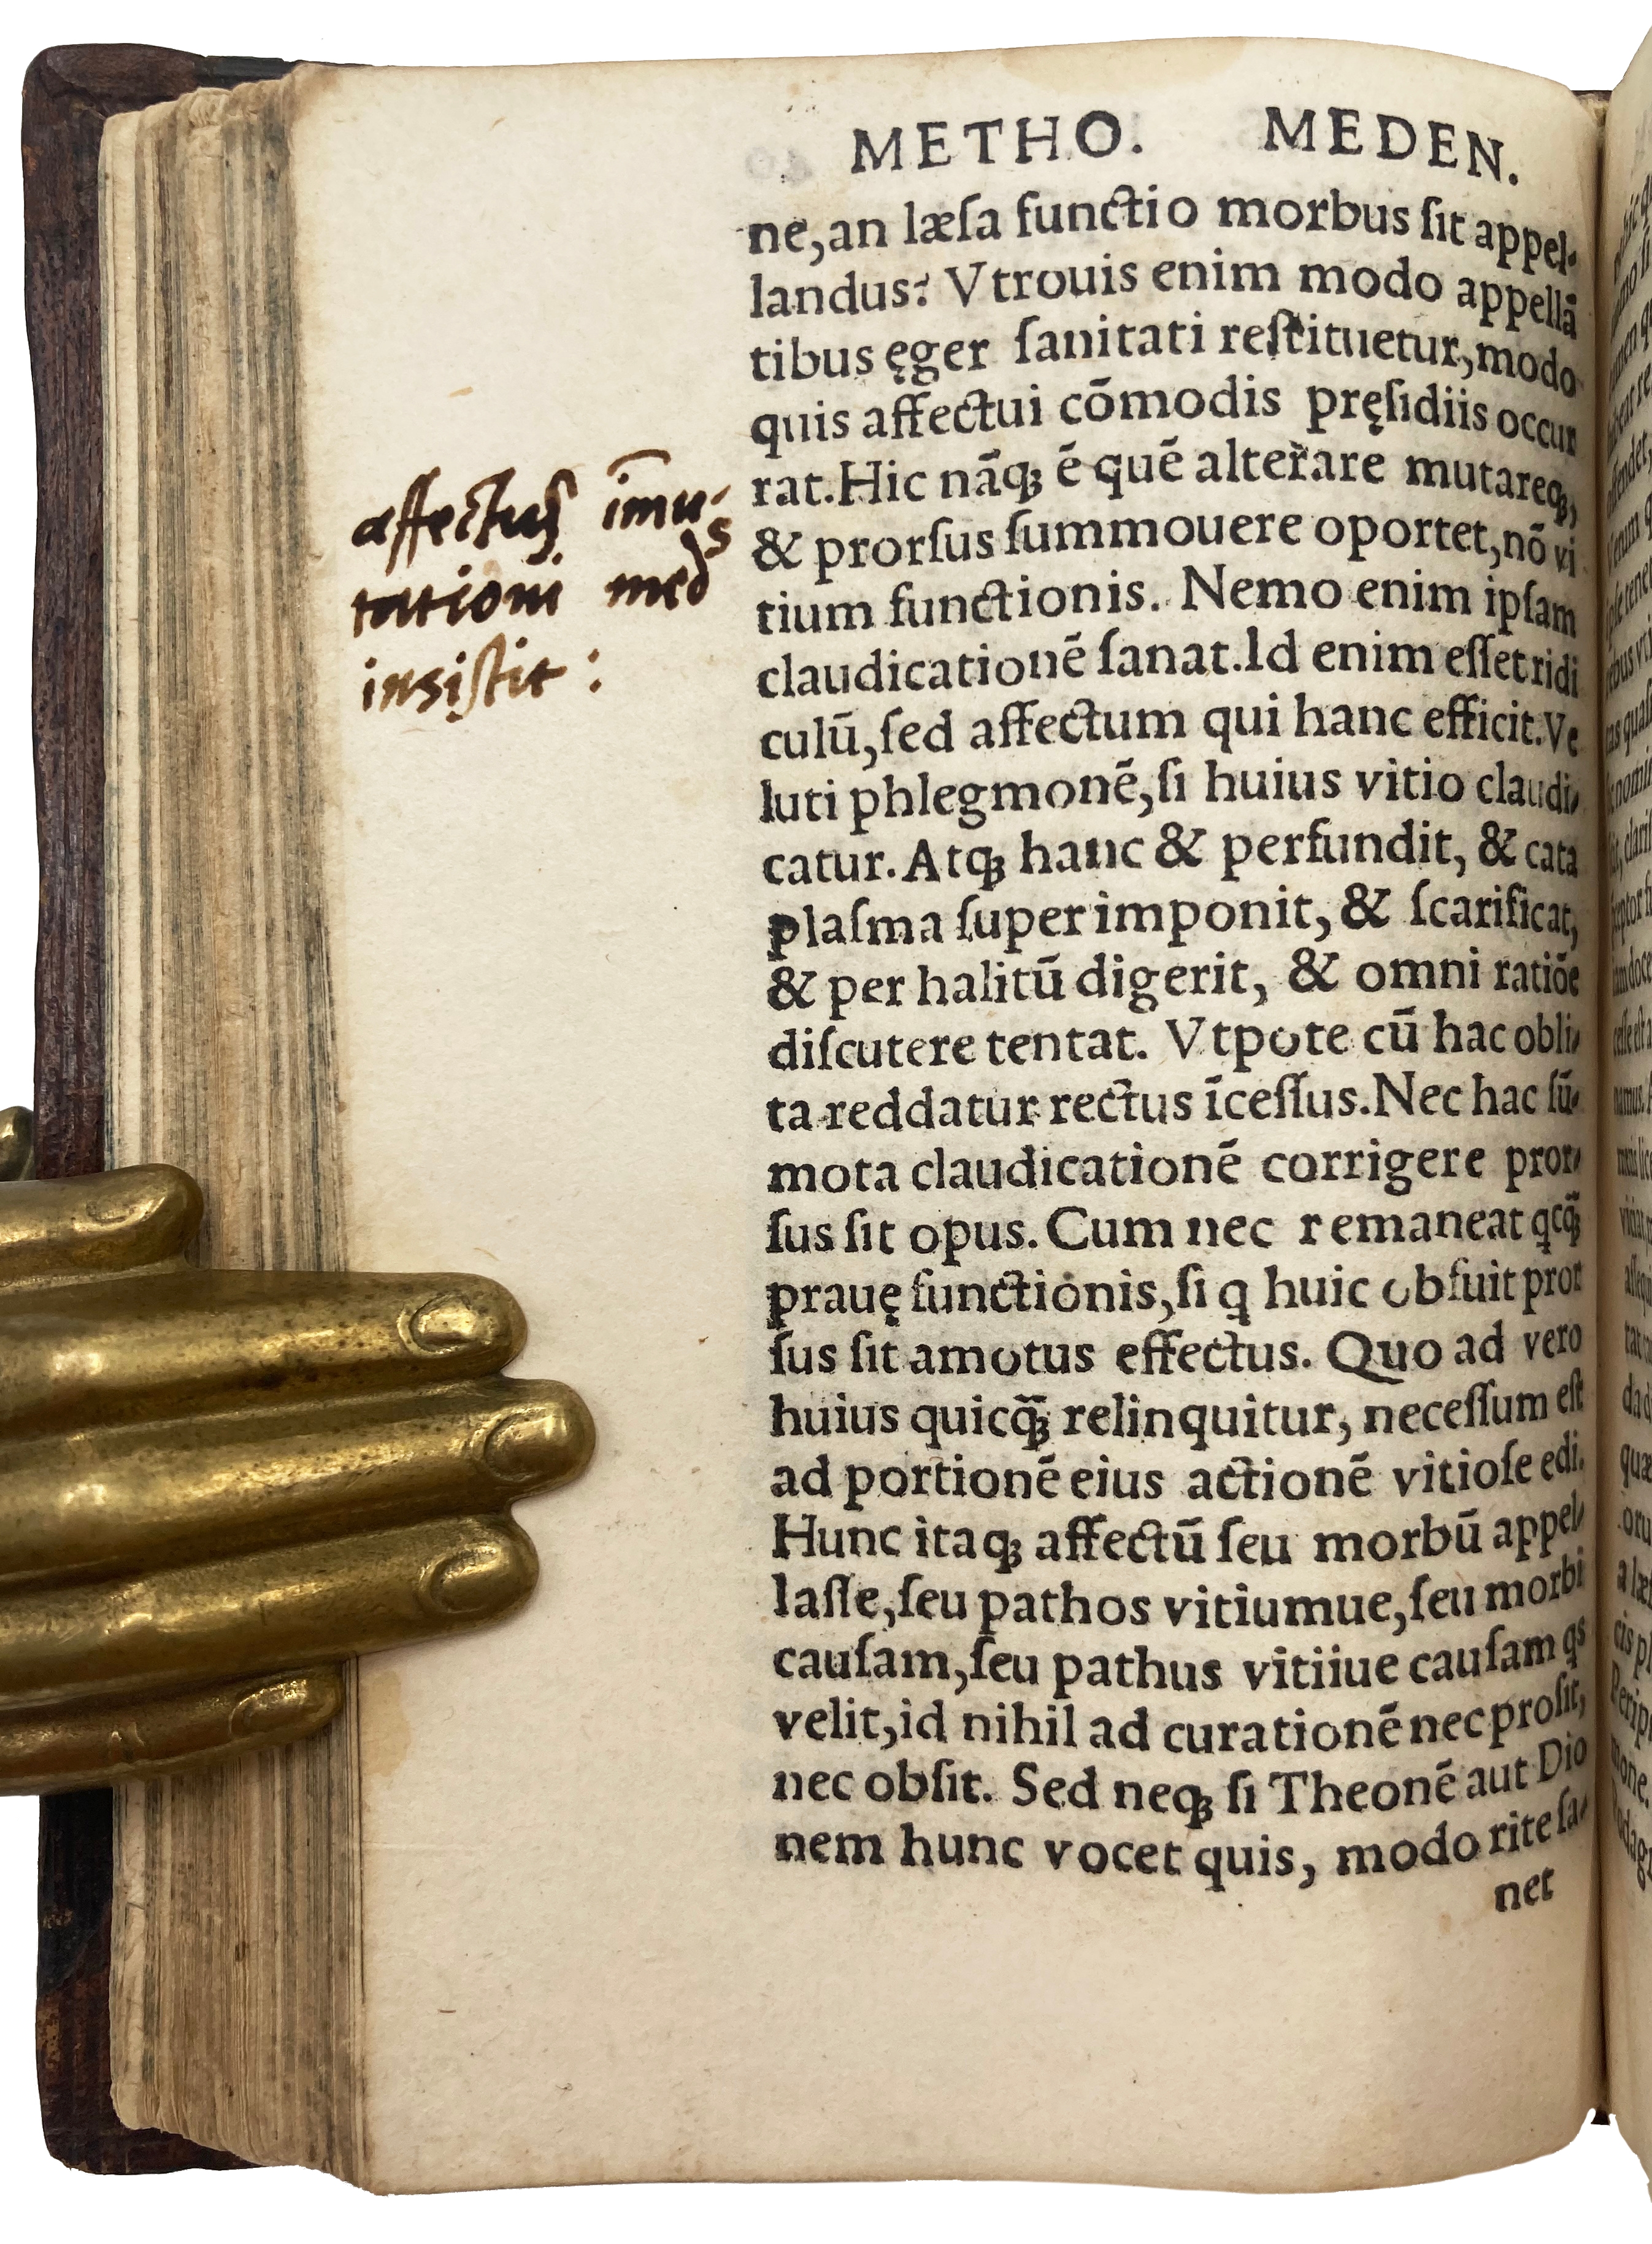 METHO. MEDEN.
ne,an læſa functio morbus ſit appel-
landus? Vtrouis enim modo appellā
tibus ęger ſanitati reſtituetur,modo
quis affectui cōmodis pręſidiis occur
rat.Hic nāqꝫ ē quē alterare mutareqꝫ,
& prorſus ſummouere oportet,nō vi
tium functionis. Nemo enim ipſam
claudicationē ſanat.Id enim eſſet ridi
culū,ſed affectum qui hanc efficit.Ve
luti phlegmonē,ſi huius vitio claudi-
catur.Atqꝫ hanc & perfundit, & cata
plaſma ſuper imponit, & ſcarificat,
& per halitū digerit, & omni ratiōe
diſcutere tentat. Vtpote cū hac obli-
ta reddatur rectus īceſſus.Nec hac ſū-
mota claudicationē corrigere pror-
ſus ſit opus. Cum nec remaneat qcq̄ꝫ
prauę functionis,ſi q huic obfuit pror
ſus ſit amotus effectus. Quo ad vero
huius quicq̄ꝫ relinquitur, neceſſum eſt
ad portionē eius actionē vitioſe edi.
Hunc itaqꝫ affectū ſeu morbū appel-
laſſe,ſeu pathos vitiumue,ſeu morbi
cauſam,ſeu pathus vitiiue cauſam qs
velit,id nihil ad curationē nec proſit,
nec obſit. Sed neqꝫ ſi Theonē aut Dio
nem hunc vocet quis, modo rite ſa-
net
affectus īmu-
tationi med^s
insiſtit :